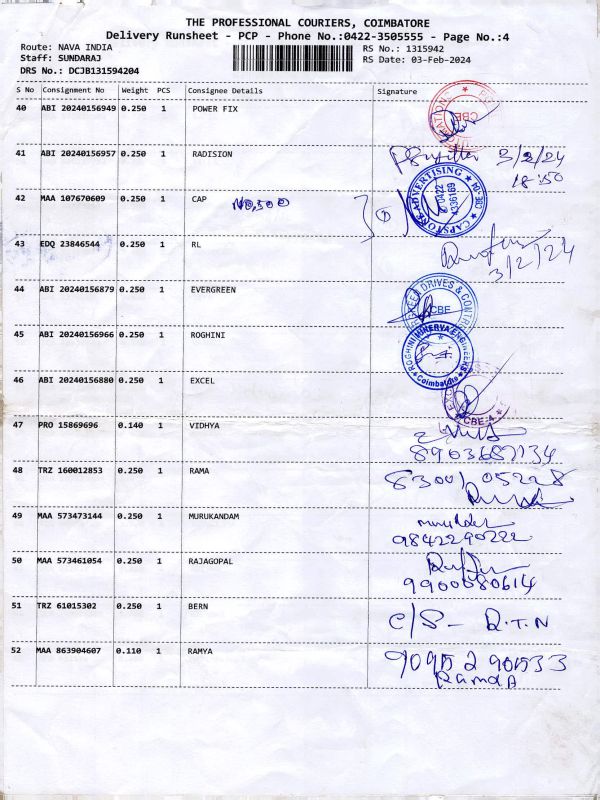 THE PROFESSIONAL COURIERS, COIMBATORE
Delivery Runsheet - PCP - Phone No.:0422-3505555 - Page No.:4
Route: NAVA INDIA
RS No.: 1315942
Staff: SUNDARAJ
RS Date: 03-Feb-2024
DRS No.: DCJB131594204
S No Consignment No Weight PCS Consignee Details Signature
40 ABI 20240156949 0.250 1 POWER FIX
CBE
41 ABI 20240156957 0.250 1 RADISION 3/2/24
18:50
42 MAA 107670609 0.250 1 CAP
CAPSTONE ADVERTISING
0422
4336189
43 EDQ 23846544 0.250 1 RL
3/2/24
44 ABI 20240156879 0.250 1 EVERGREEN
DRIVES & CONTR
CBE
45 ABI 20240156966 0.250 1 ROGHINI
ROGHINI MINERVA ENGINEERS
Coimbatore
46 ABI 20240156880 0.250 1 EXCEL
CBE-4
47 PRO 15869696 0.140 1 VIDHYA
8903687134
48 TRZ 160012853 0.250 1 RAMA 83001 05228
49 MAA 573473144 0.250 1 MURUKANDAM
9842290222
50 MAA 573461054 0.250 1 RAJAGOPAL
9900080614
51 TRZ 61015302 0.250 1 BERN C/S - D.T.N
52 MAA 863904607 0.110 1 RAMYA 90952 90533